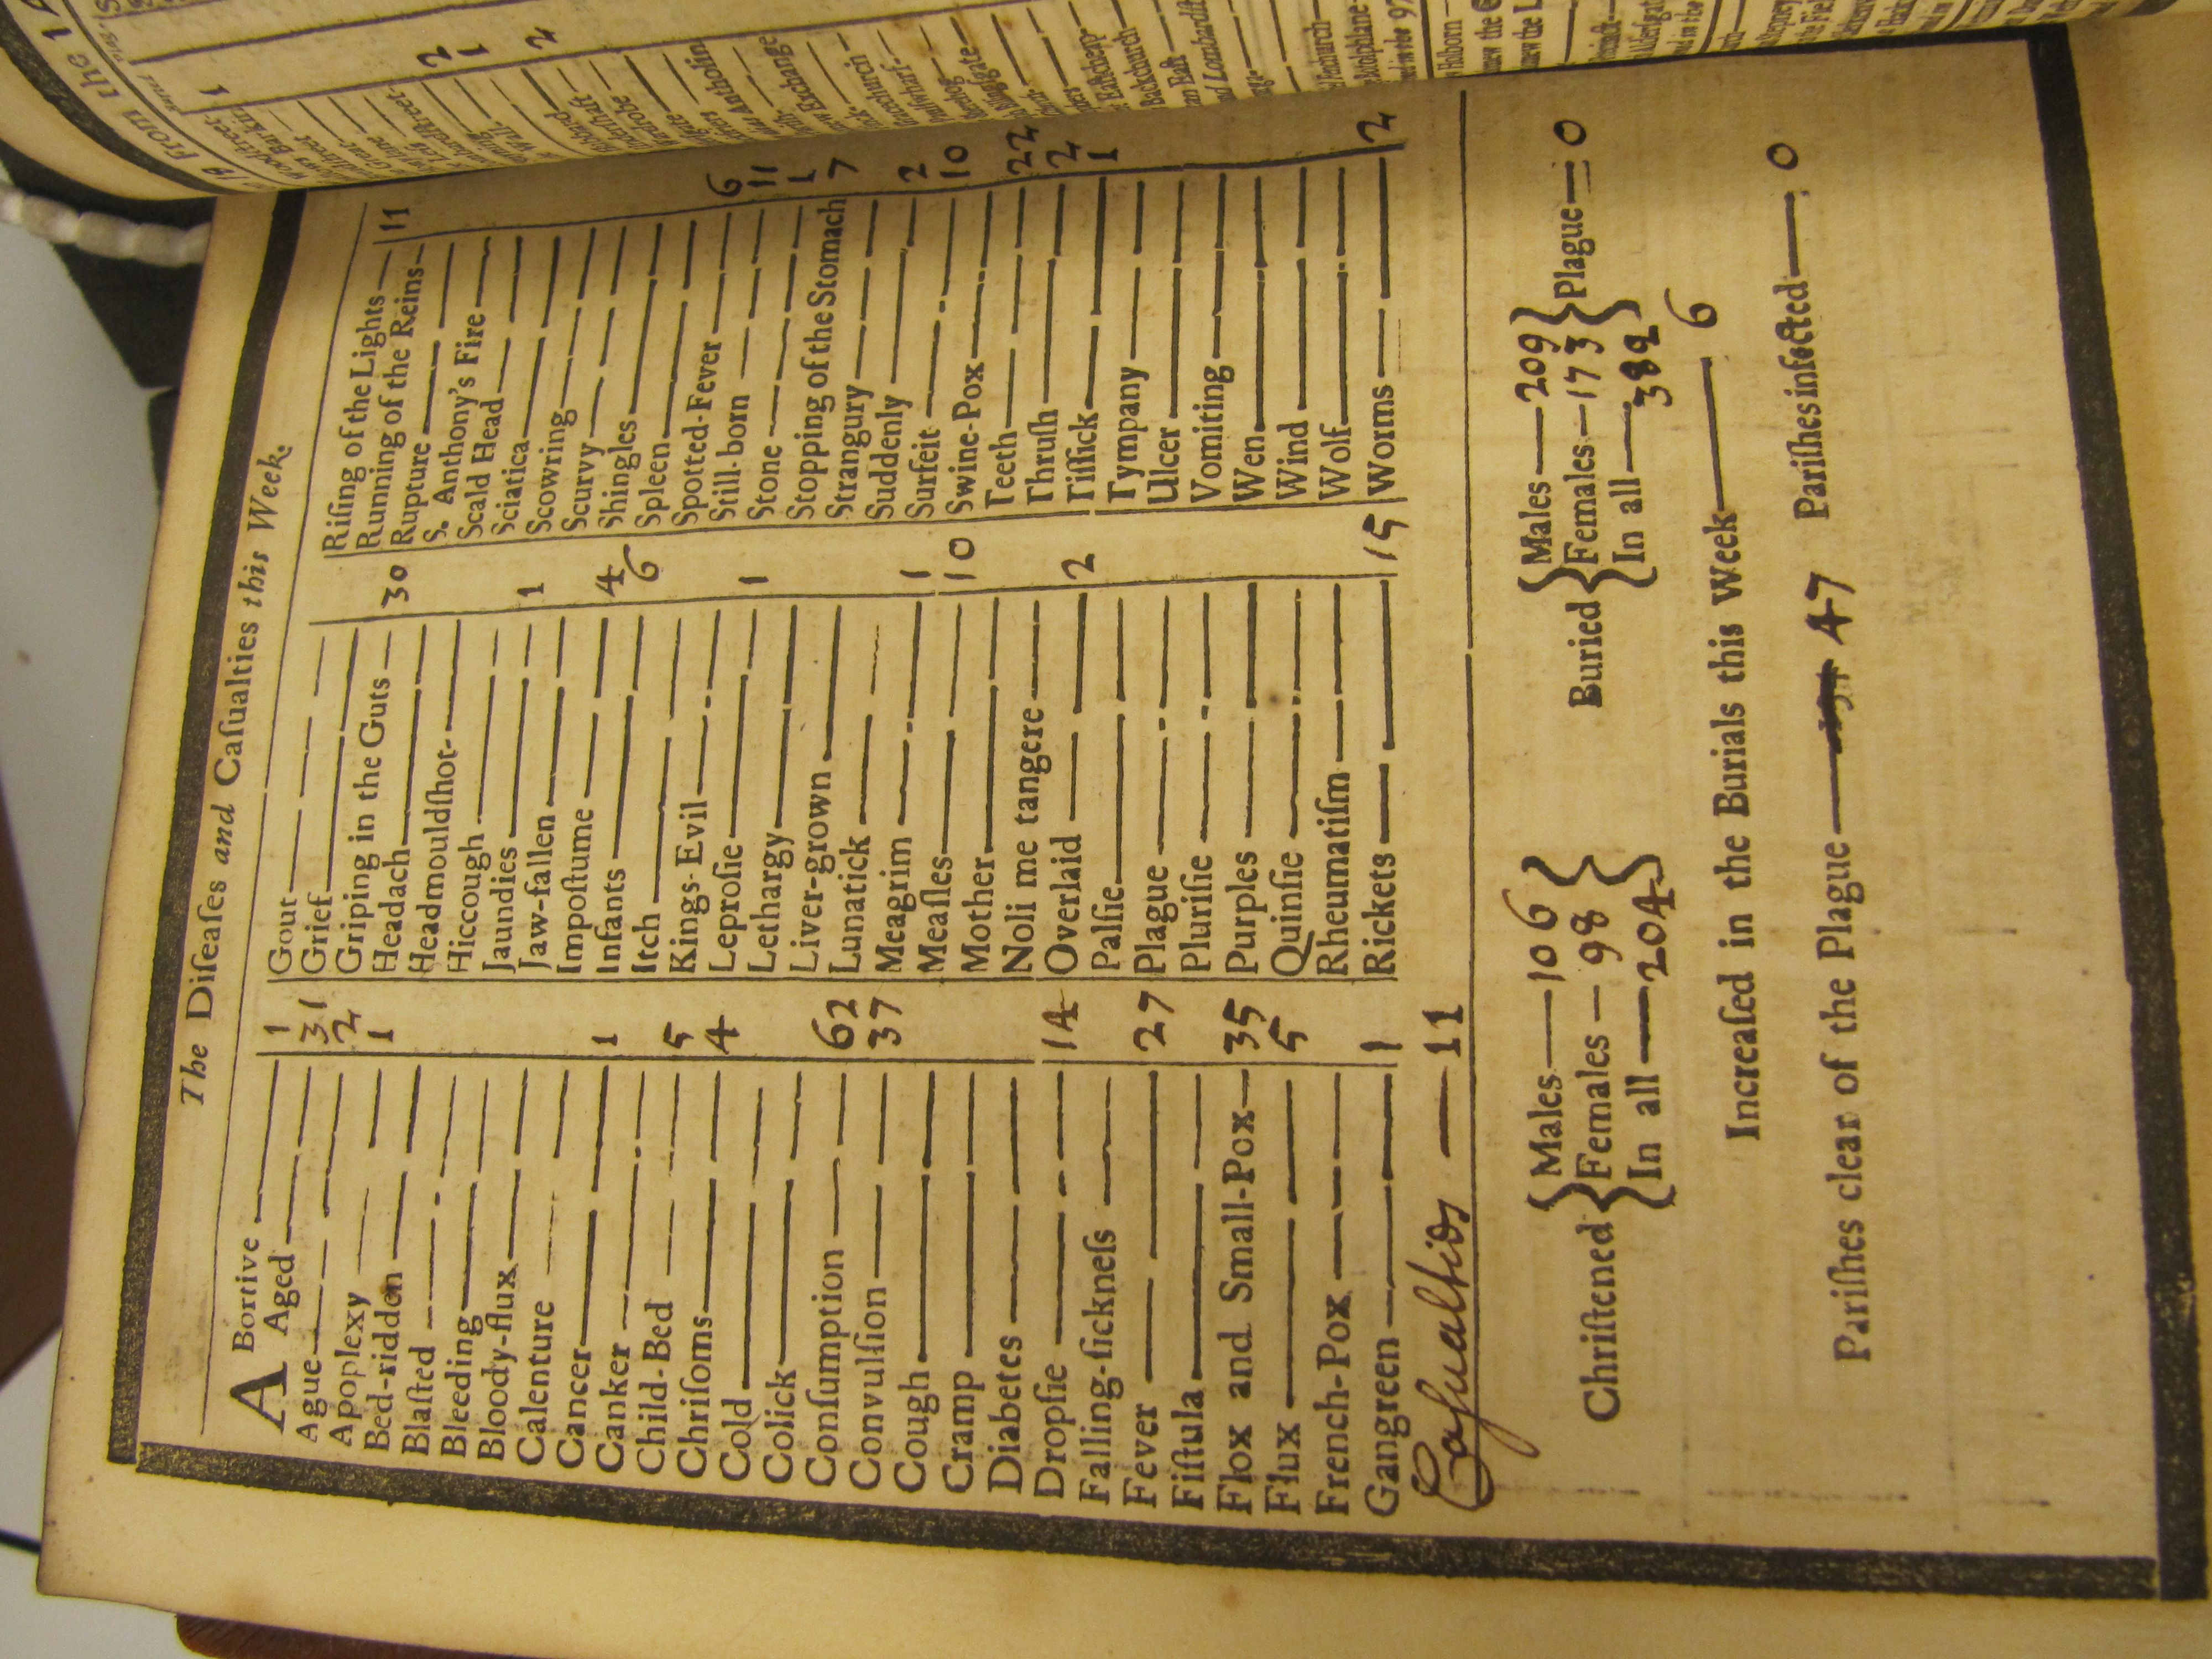 The Diſeaſes and Caſualties this Week.
A Bortive — 1
Aged — 31
Ague — 2
Apoplexy — 1
Bed-ridden
Blaſted
Bleeding
Bloody-flux
Calenture
Cancer — 1
Canker
Child-Bed — 5
Chriſoms — 4
Cold
Colick
Conſumption — 62
Convulſion — 37
Cough
Cramp
Diabetes
Dropſie — 14
Falling-ſickneſs
Fever — 27
Fiſtula
Flox and Small-Pox — 35
Flux — 5
French-Pox
Gangreen — 1
Caſualtids — 11
Gout
Grief
Griping in the Guts — 30
Headach
Headmouldſhot
Hiccough
Jaundies — 1
Jaw-fallen
Impoſtume — 4
Infants — 6
Itch
Kings-Evil
Leproſie — 1
Lethargy
Liver-grown
Lunatick
Meagrim — 1
Meaſles — 10
Mother
Noli me tangere
Overlaid — 2
Palſie
Plague
Pluriſie
Purples
Quinſie
Rheumatiſm
Rickets — 15
Riſing of the Lights — 11
Running of the Reins
Rupture
S. Anthony's Fire
Scald Head
Sciatica
Scowring
Scurvy
Shingles
Spleen
Spotted-Fever — 6
Still-born — 11
Stone — 1
Stopping of the Stomach — 7
Strangury
Suddenly — 2
Surfeit — 10
Swine-Pox
Teeth — 22
Thruſh — 2
Tiſſick — 1
Tympany
Ulcer
Vomiting
Wen
Wind
Wolf
Worms — 2
Chriſtened { Males — 106 Females — 98 In all — 204 }
Buried { Males — 209 Females — 173 In all — 382 } Plague — 0
Increaſed in the Burials this Week — 6
Pariſhes clear of the Plague — 47 Pariſhes infected — 0